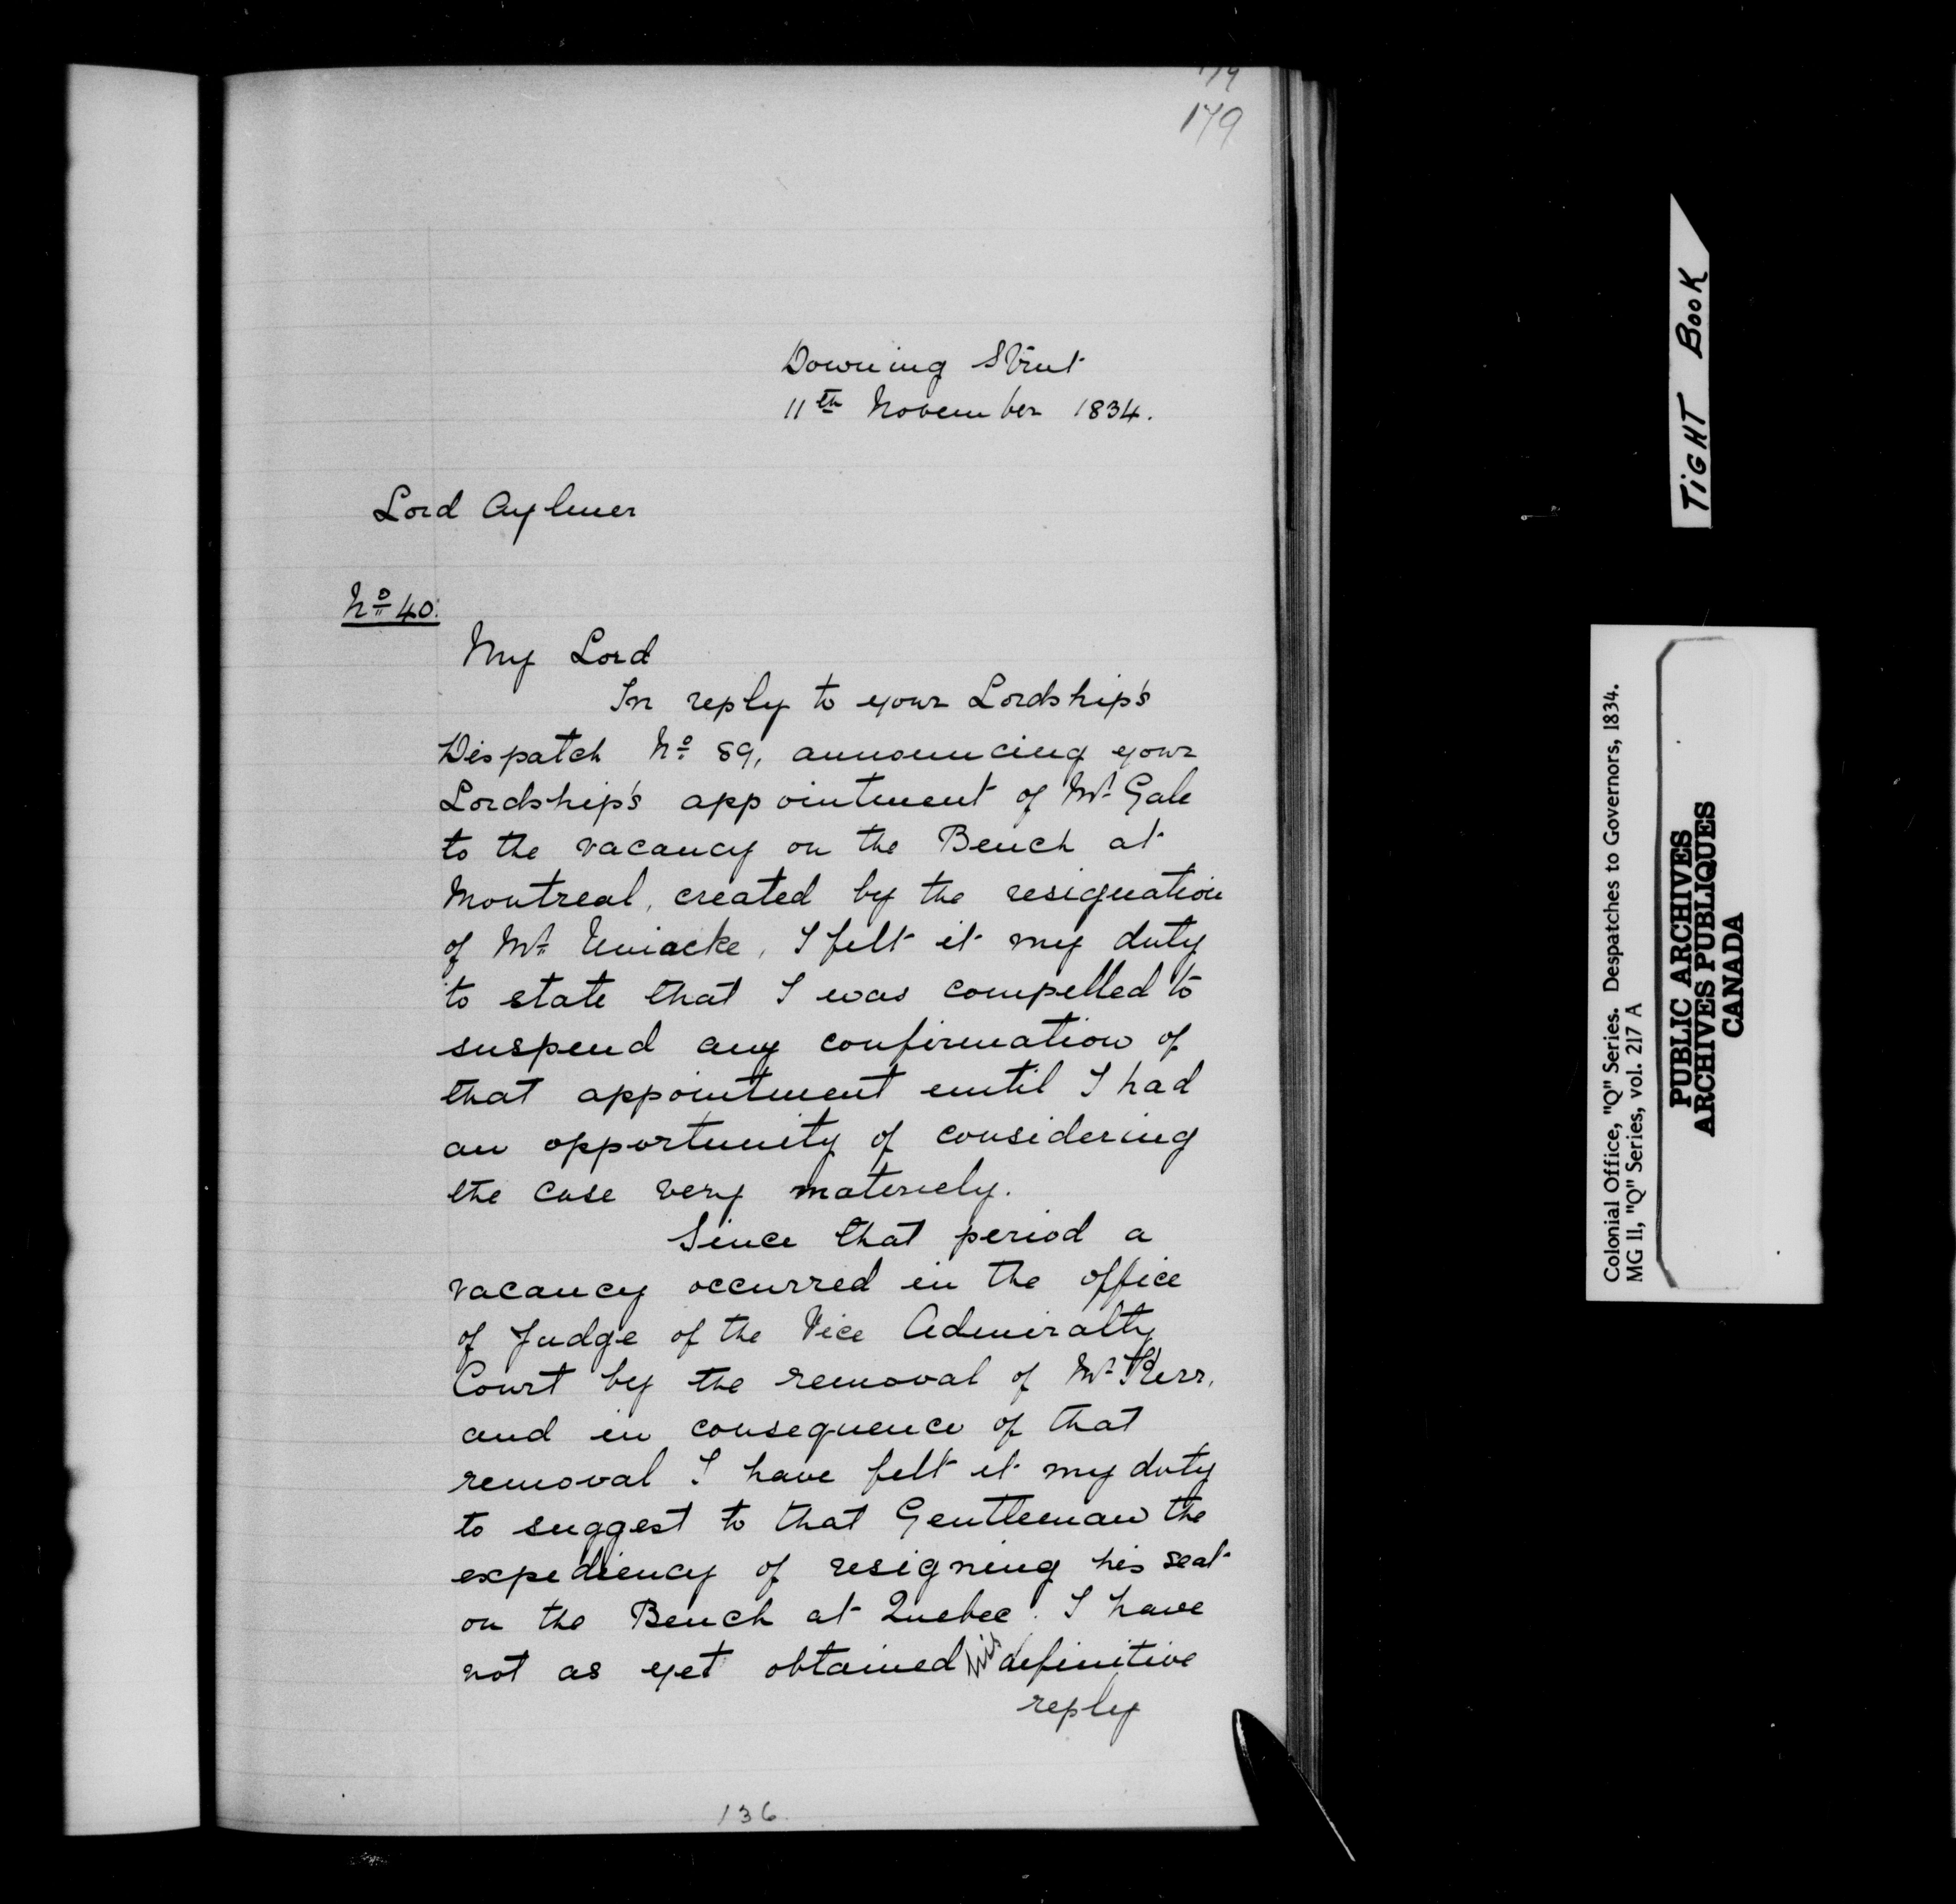 179
179
Downing Street
11th November 1834.
Lord Aylmer
No 40.
My Lord
In reply to your Lordship's
Dispatch No 89, announcing your
Lordship's appointment of Mr Gale
to the vacancy on the Bench at
Montreal, created by the resignation
of Mr Uniacke, I felt it my duty
to state that I was compelled to
suspend any confirmation of
that appointment until I had
an opportunity of considering
the case very maturely.
Since that period a
vacancy occurred in the office
of Judge of the Vice Admiralty
Court by the removal of Mr Kerr,
and in consequence of that
removal I have felt it my duty
to suggest to that Gentleman the
expediency of resigning his seat
on the Bench at Quebec. I have
not as yet obtained his definitive
reply
136
TIGHT BOOK
Colonial Office, "Q" Series. Despatches to Governors, 1834.
MG 11, "Q" Series, vol. 217 A
PUBLIC ARCHIVES
ARCHIVES PUBLIQUES
CANADA